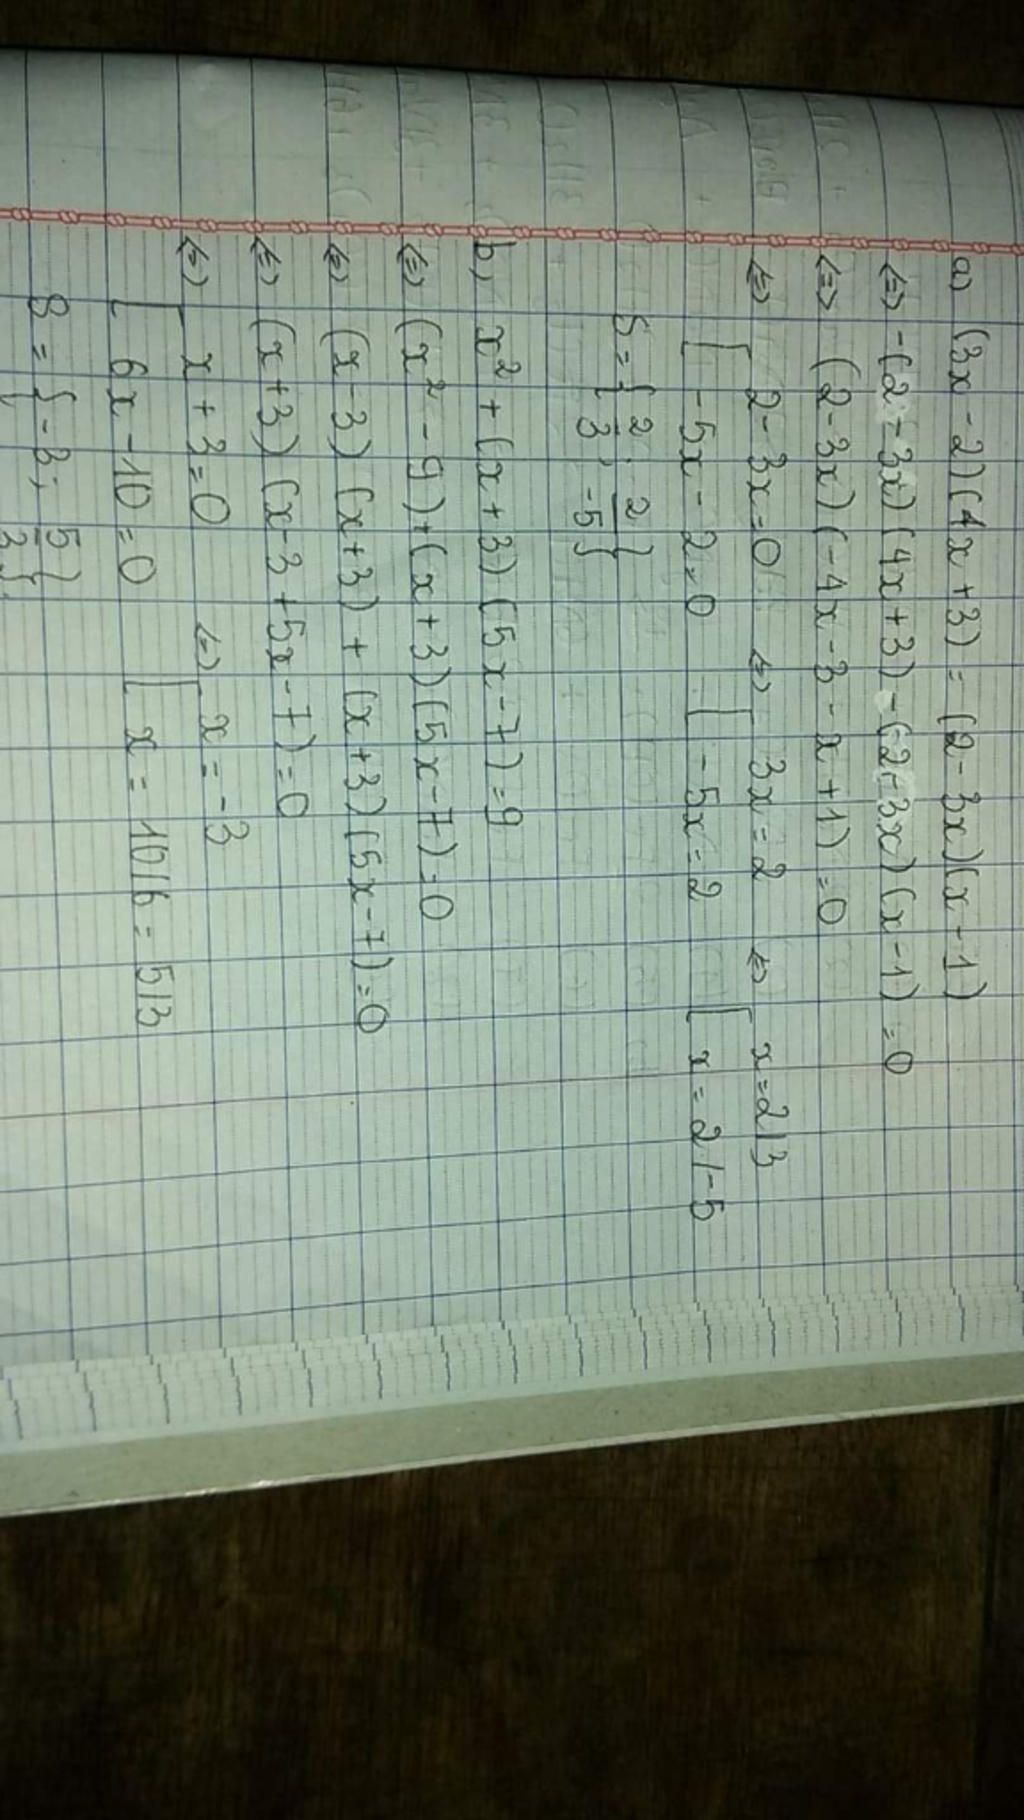 a) (3x-2)(4x+3) = (2-3x)(x-1)
<=> -(2-3x)(4x+3) - (2-3x)(x-1) = 0
<=> (2-3x)(-4x-3-x+1) = 0
<=> [ 2-3x=0 <=> [ 3x=2 <=> [ x=2/3
-5x-2=0 -5x=2 x=2/-5
S = { 2/3; 2/-5 }
b) x² + (x+3)(5x-7) = 9
<=> (x²-9)+(x+3)(5x-7)=0
<=> (x-3)(x+3) + (x+3)(5x-7)=0
<=> (x+3)(x-3+5x-7)=0
<=> [ x+3=0 <=> [ x=-3
6x-10=0 x = 10/6 = 5/3
S = { -3; 5/3 }